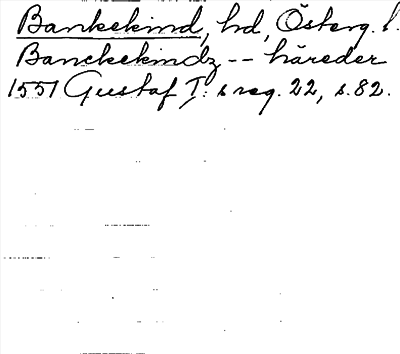 Bankekind, hd, Österg. l.
Banckekindz -- häreder
1551 Gustaf I: s reg. 22, s. 82.